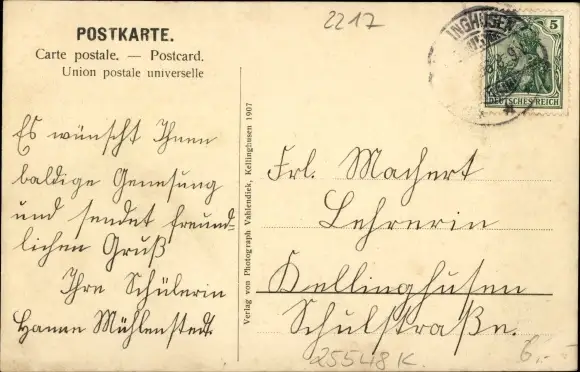 2217
POSTKARTE.
Carte postale. — Postcard.
Union postale universelle
INGHUSEN
5
DEUTSCHES REICH
Es wünscht Ihnen
baldige Genesung
und sendet freund=
lichen Gruß
Ihre Schülerin
Hanne Mühlenstedt.
Verlag von Photograph Vahlendiek, Kellinghusen 1907
Frl. Machert
Lehrerin
Kellinghusen
Schulstraße.
25548 K.
6,-